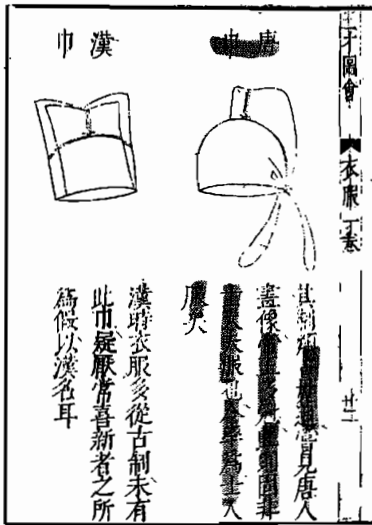 才圖會
衣服
卷
廿二
唐巾
其制類嘗見唐人
畫像非
也爲士人
服矣
漢巾
漢時衣服多從古制未有
此巾疑厭常喜新者之所
爲假以漢名耳